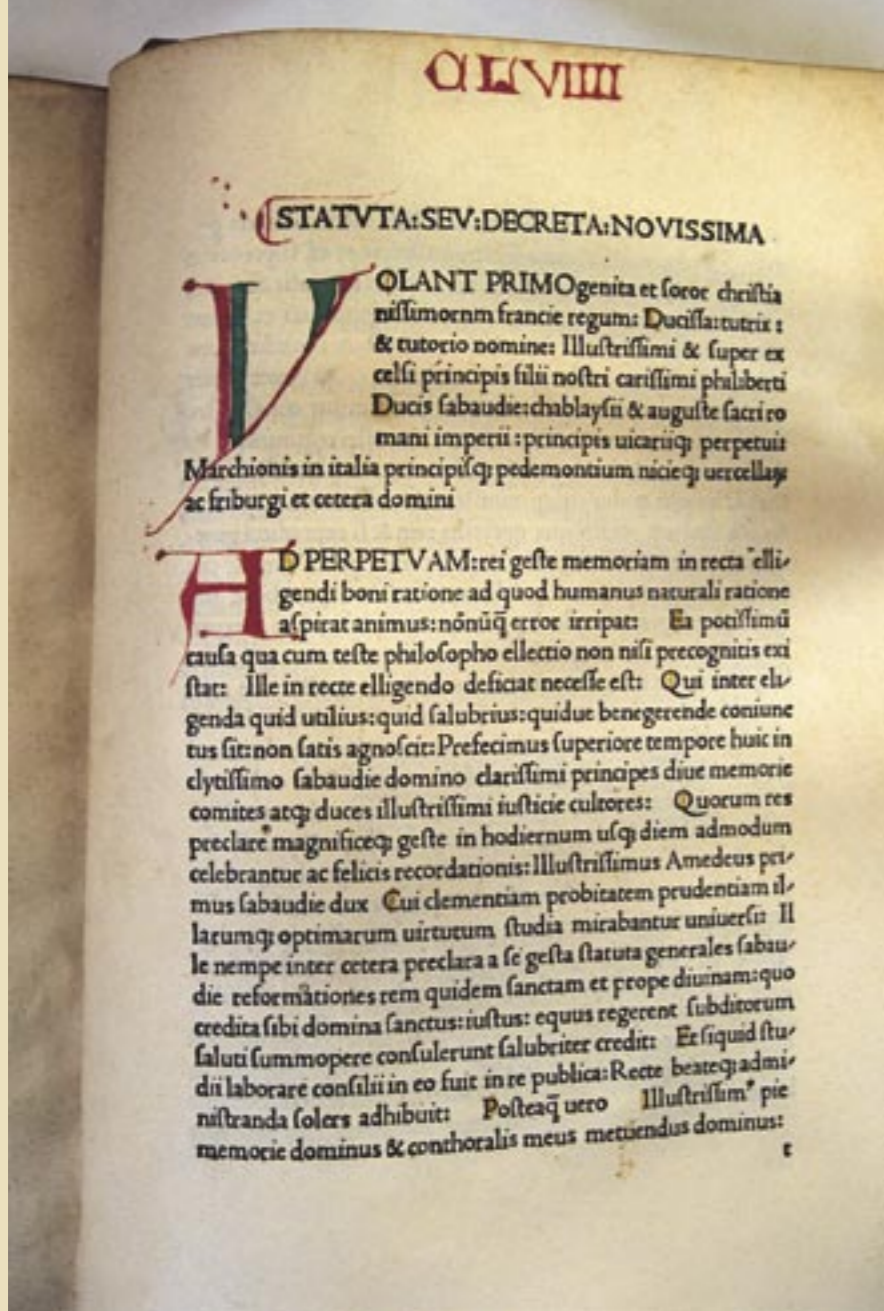 CLVIIII
STATVTA:SEV:DECRETA:NOVISSIMA
VOLANT PRIMOgenita et soror christia
nissimornm francie regum: Ducissa:tutrix :
& tutorio nomine: Illustrissimi & super ex
celsi principis filii nostri carissimi philiberti
Ducis sabaudie:chablaysii & auguste sacri ro
mani imperii :principis uicariiqꝫ perpetuis
Marchionis in italia principisqꝫ pedemontium nicieqꝫ uercellaꝝ
ac friburgi et cetera domini
AD PERPETVAM:rei geste memoriam in recta elli-
gendi boni ratione ad quod humanus naturali ratione
aspirat animus:nōnūq̄ error irripat: Ea potissimū
causa qua cum teste philosopho ellectio non nisi precognitis exi
stat: Ille in recte elligendo deficiat necesse est: Qui inter eli-
genda quid utilius:quid salubrius:quidue benegerende coniunc
tus sit:non satis agnoscit:Prefecimus superiore tempore huic in
clytissimo sabaudie domino clarissimi principes diue memorie
comites atqꝫ duces illustrissimi iusticie cultores: Quorum res
preclare magnificeqꝫ geste in hodiernum usqꝫ diem admodum
celebrantur ac felicis recordationis:Illustrissimus Amedeus pri-
mus sabaudie dux Cui clementiam probitatem prudentiam il-
larumqꝫ optimarum uirtutum studia mirabantur uniuersi: Il
le nempe inter cetera preclara a se gesta statuta generales sabau-
die reformationes rem quidem sanctam et prope diuinam:quo
credita sibi domina sanctus:iustus: equus regerent subditorum
saluti summopere consulerunt salubriter credit: Et siquid stu-
dii laborare consilii in eo fuit in re publica:Recte beateqꝫ admi-
nistranda solers adhibuit: Posteaq̄ uero Illustrissimꝰ pie
memorie dominus & conthoralis meus metuendus dominus:
t